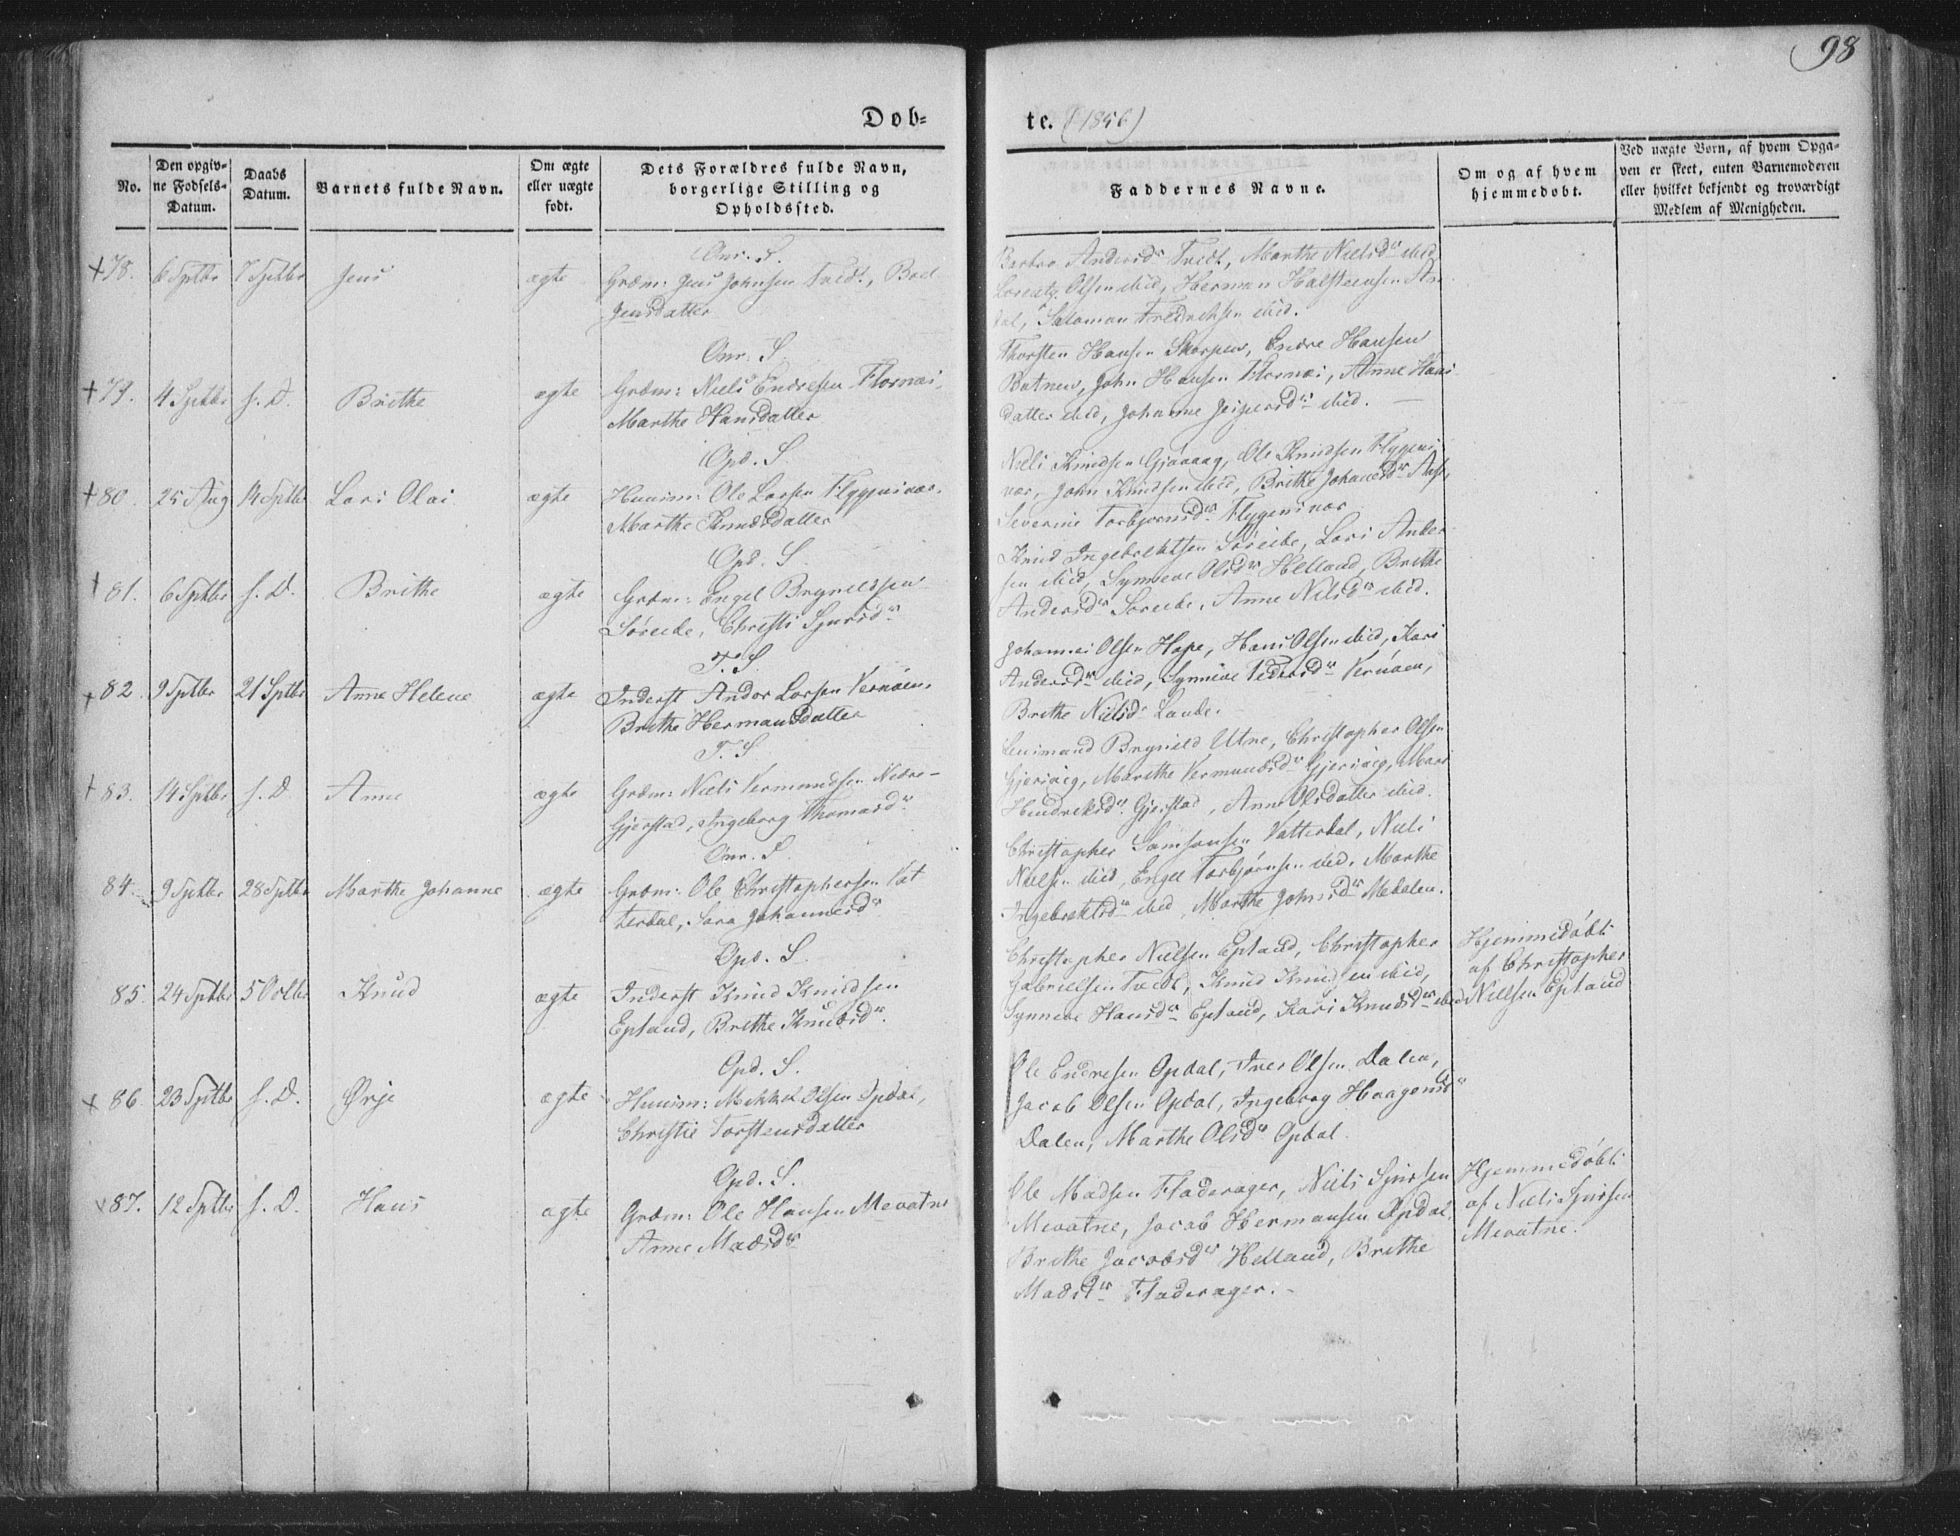 98
Døb=
te. (1856)
No.
Den opgiv=
ne Fødsels=
Datum.
Daabs
Datum.
Barnets fulde Navn.
Om ægte
eller uægte
født.
Dets Forældres fulde Navn,
borgerlige Stilling og
Opholdssted.
Faddernes Navne.
Om og af hvem
hjemmedøbt.
Ved uægte Børn, af hvem Opga=
ven er skeet, enten Barnemoderen
eller hvilket bekjendt og troværdigt
Medlem af Menigheden.
+78. 6 Sptbr 7 Sptbr Jens ægte
S.
Grdm: Jens Johnsen Tvedt,
Jensdatter
Anders Dr Tvedt, Marthe Niels Dr ibid
Olsen ibid, Herman Halsteensen
Salomon Fredriksen ibid.
+79. 4 Sptbr s. D. Brithe ægte
S.
Grdm: Niels Endresen
Marthe Hansdatter
Thorsten Hansen Skorpen, Endre Hansen
John Hansen Anne Hans
datter ibid, Johanne Jespersd ibid.
+80. 25 Aug 14 Sptbr Lars Olai ægte
Opd. S.
Huusm: Ole Larsen
Marthe Knudsdatter
Niels Knudsen Ole Knudsen
John Knudsen ibid, Brithe
Severine Torbjørnsd
+81. 6 Sptbr s. D. Brithe ægte
Opd. S.
Grdm: Engel Brynildsen
Søreide, Christi Sjursd
Knud Ingebrektsen Søreide, Lars Ander
sen ibid, Synneve Olsd Helland, Brithe
Andersd Søreide, Anne Nilsd ibid.
+82. 9 Sptbr 21 Sptbr Anne Helene ægte
T. S.
Inderst Andor Larsen Vernøen,
Brithe Hermansdatter
Johannes Olsen Hope, Hans Olsen ibid, Kari
Andersd ibid, Synneve Pedersd Vernøen,
Brithe Nielsd
+83. 14 Sptbr s. D. Anne ægte
T. S.
Grdm: Niels Vermundsen Nedre-
Gjerstad, Ingeborg Thomasd
Lensmand Brynild Utne, Christopher Olsen
Gjersvig, Marthe Vermundsd Gjersvig, Mari
Hendriksd Gjerstad, Anne Olsdatter ibid.
84. 9 Sptbr 28 Sptbr Marthe Johanne ægte
S.
Grdm: Ole Christophersen Vat
terdal, Sara Johannesd
Christopher Samsonsen Vatterdal, Niels
Nielsen ibid, Engel Torbjørnsen ibid, Marthe
Ingebrektsd ibid, Marthe Johnsd
85. 24 Sptbr 5 Octbr Knud ægte
Opd. S.
Inderst Knud Knudsen
Epland, Brithe Knudsd
Christopher Nielsen Epland, Christopher
Gabrielsen Tvedt, Knud Knudsen ibid,
Synneve Hansd Epland, Kari Knudsd ibid
Hjemmedøbt
af Christopher
Nielsen Epland
+86. 23 Sptbr s. D. Ørje ægte
Opd. S.
Huusm: Mikkel Olsen Opdal,
Christie Torstensdatter
Ole Endresen Opdal, Iver Olsen Dalen,
Jacob Olsen Opdal, Ingeborg Haagensd
Dalen, Marthe Olsd Opdal.
+87. 12 Sptbr s. D. Hans ægte
Opd. S.
Grdm: Ole Hansen Mevatne
Anne Madsd
Ole Madsen Fladerager, Niels Sjursen
Mevatne, Jacob Hermansen Opdal,
Brithe Jacobsd Helland, Brithe
Madsd Fladerager.
Hjemmedøbt
af Niels Sjursen
Mevatne.